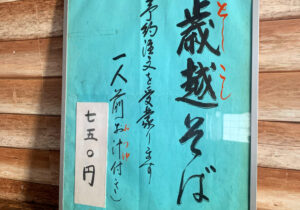 歳越そば
としこし
予約注文を受承ります
一人前お汁付き
つゆ
七五〇円